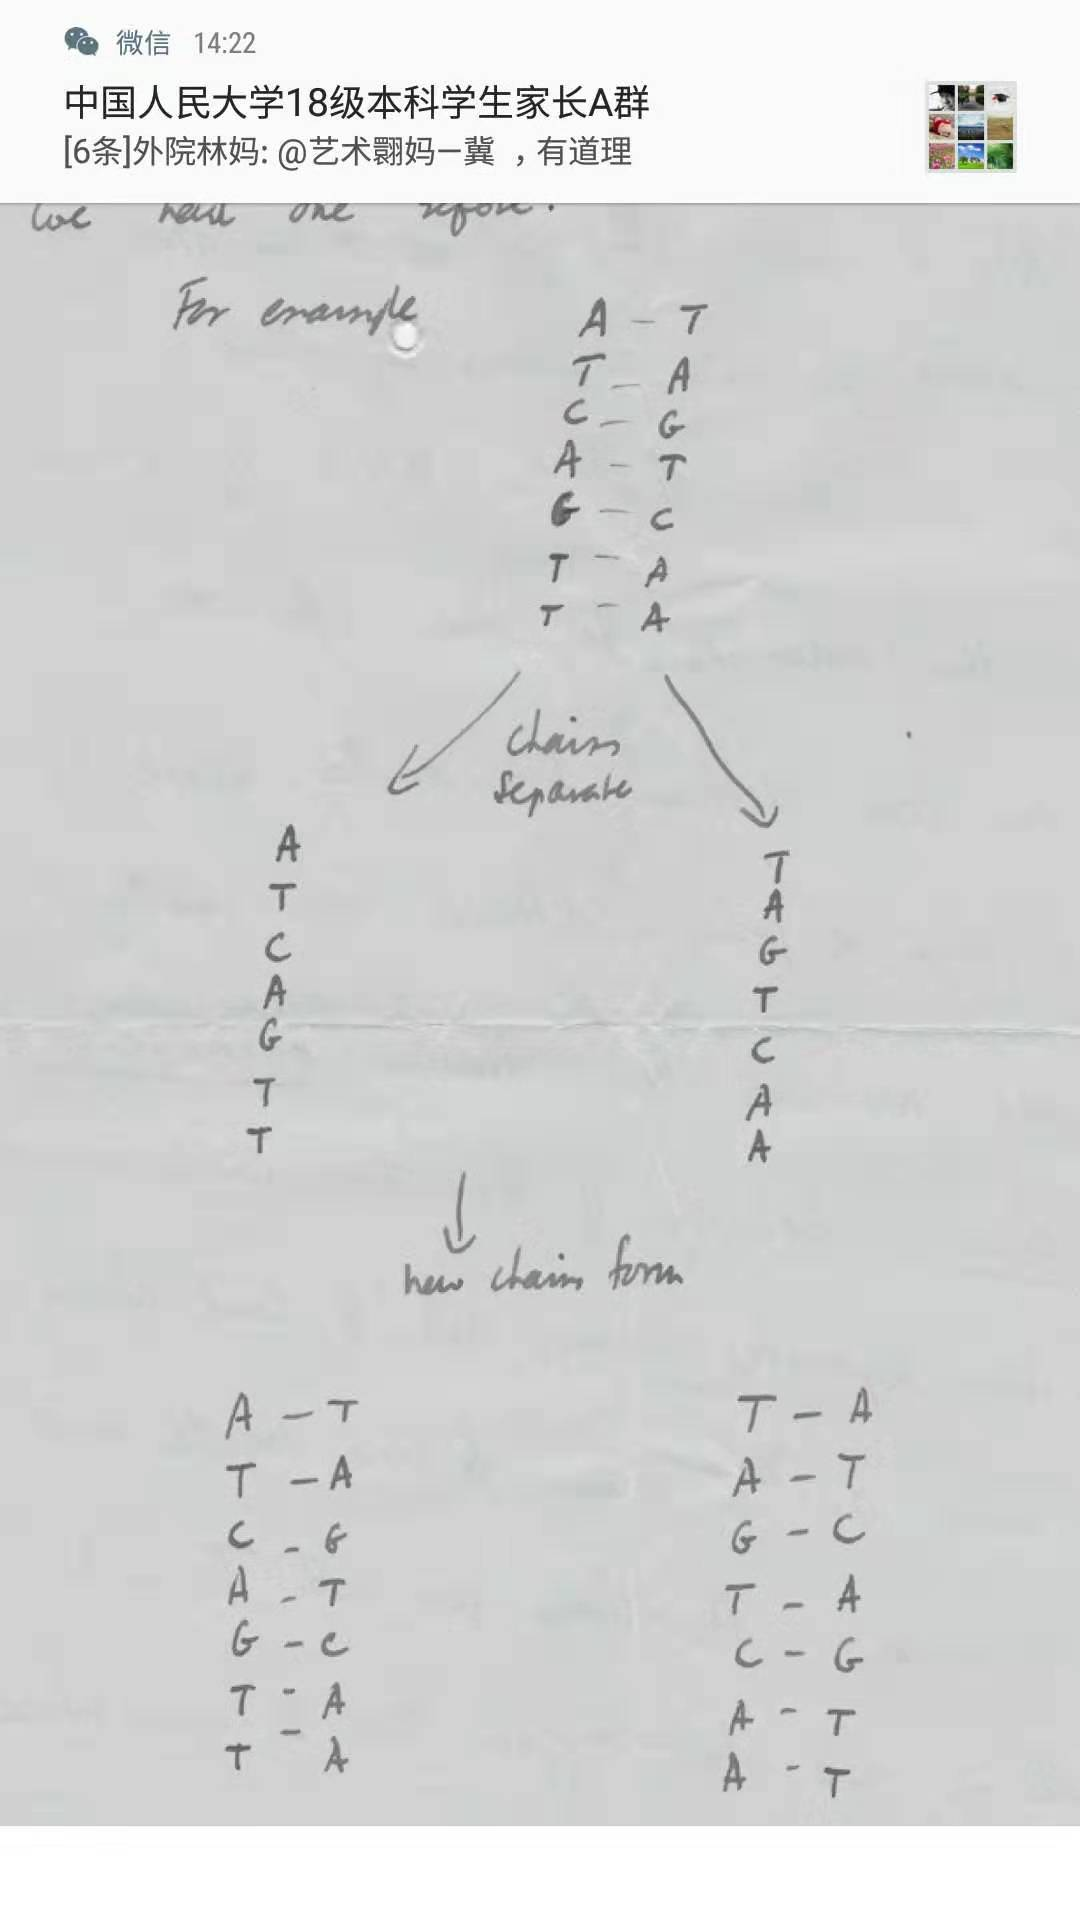 微信 14:22
中国人民大学18级本科学生家长A群
[6条]外院林妈: @艺术翾妈一冀 ，有道理
we had one before.
For example
A - T
T - A
C - G
A - T
G - C
T - A
T - A
chains
separate
A
T
C
A
G
T
T
T
A
G
T
C
A
A
new chains form
A - T
T - A
C - G
A - T
G - C
T - A
T - A
T - A
A - T
G - C
T - A
C - G
A - T
A - T